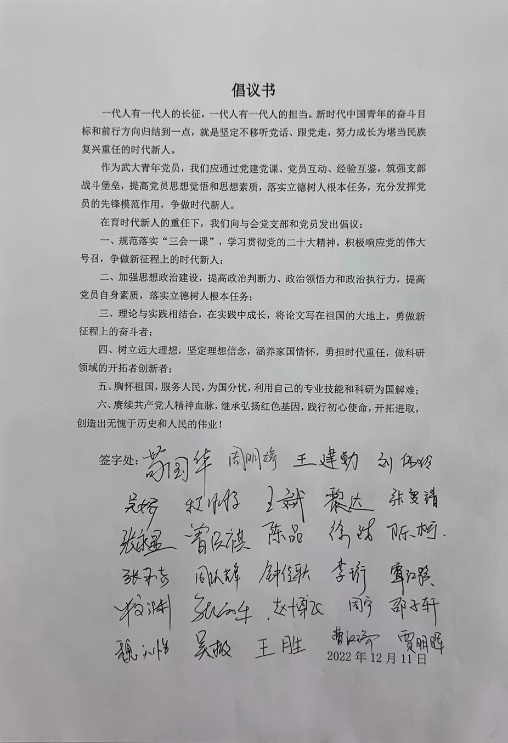 倡议书
一代人有一代人的长征，一代人有一代人的担当。新时代中国青年的奋斗目
标和前行方向归结到一点，就是坚定不移听党话、跟党走，努力成长为堪当民族
复兴重任的时代新人。
作为武大青年党员，我们应通过党建党课、党员互动、经验互鉴，筑强支部
战斗堡垒，提高党员思想觉悟和思想素质，落实立德树人根本任务，充分发挥党
员的先锋模范作用，争做时代新人。
在育时代新人的重任下，我们向与会党支部和党员发出倡议：
一、规范落实“三会一课”，学习贯彻党的二十大精神，积极响应党的伟大
号召，争做新征程上的时代新人；
二、加强思想政治建设，提高政治判断力、政治领悟力和政治执行力，提高
党员自身素质，落实立德树人根本任务；
三、理论与实践相结合，在实践中成长，将论文写在祖国的大地上，勇做新
征程上的奋斗者；
四、树立远大理想，坚定理想信念，涵养家国情怀，勇担时代重任，做科研
领域的开拓者创新者；
五、胸怀祖国，服务人民，为国分忧，利用自己的专业技能和科研为国解难；
六、赓续共产党人精神血脉，继承弘扬红色基因，践行初心使命，开拓进取，
创造出无愧于历史和人民的伟业！
签字处： 王建勤
王斌 黎达
陈品 陈柯
李珩
赵博飞 周宁 邵子轩
吴极 王胜 贾明晖
2022年12月11日